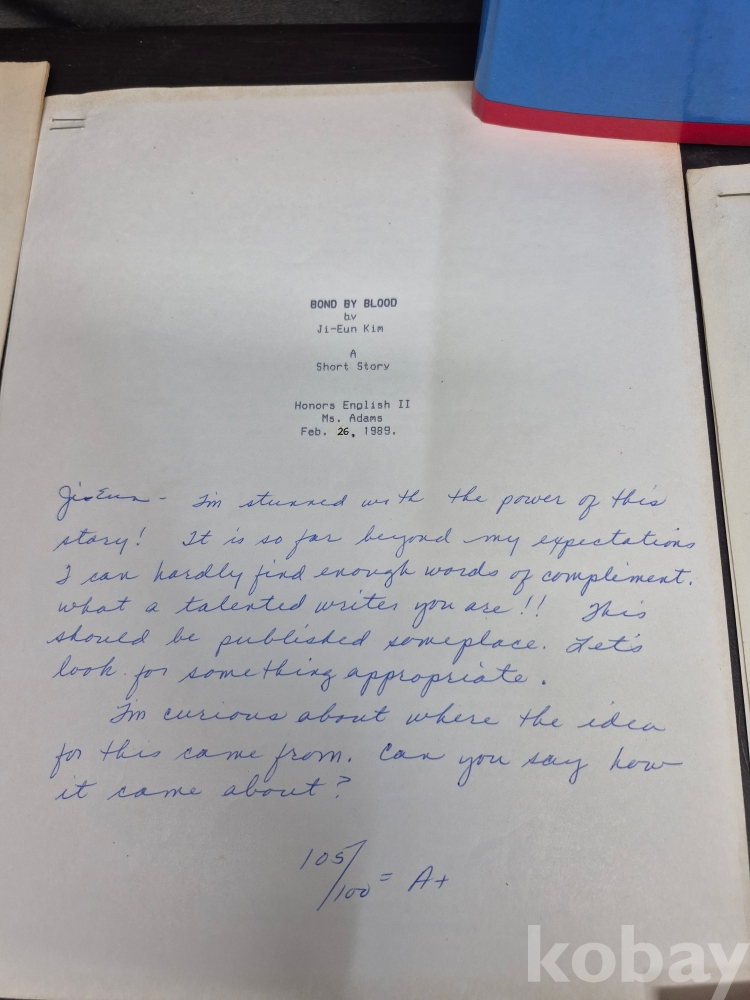 BOND BY BLOOD
by
Ji-Eun Kim
A
Short Story
Honors English II
Ms. Adams
Feb. 26, 1989.
Ji-Eun - I'm stunned with the power of this
story! It is so far beyond my expectations
I can hardly find enough words of compliment.
What a talented writer you are!! This
should be published someplace. Let's
look for something appropriate.
I'm curious about where the idea
for this came from. Can you say how
it came about?
105/100 = A+
kobay